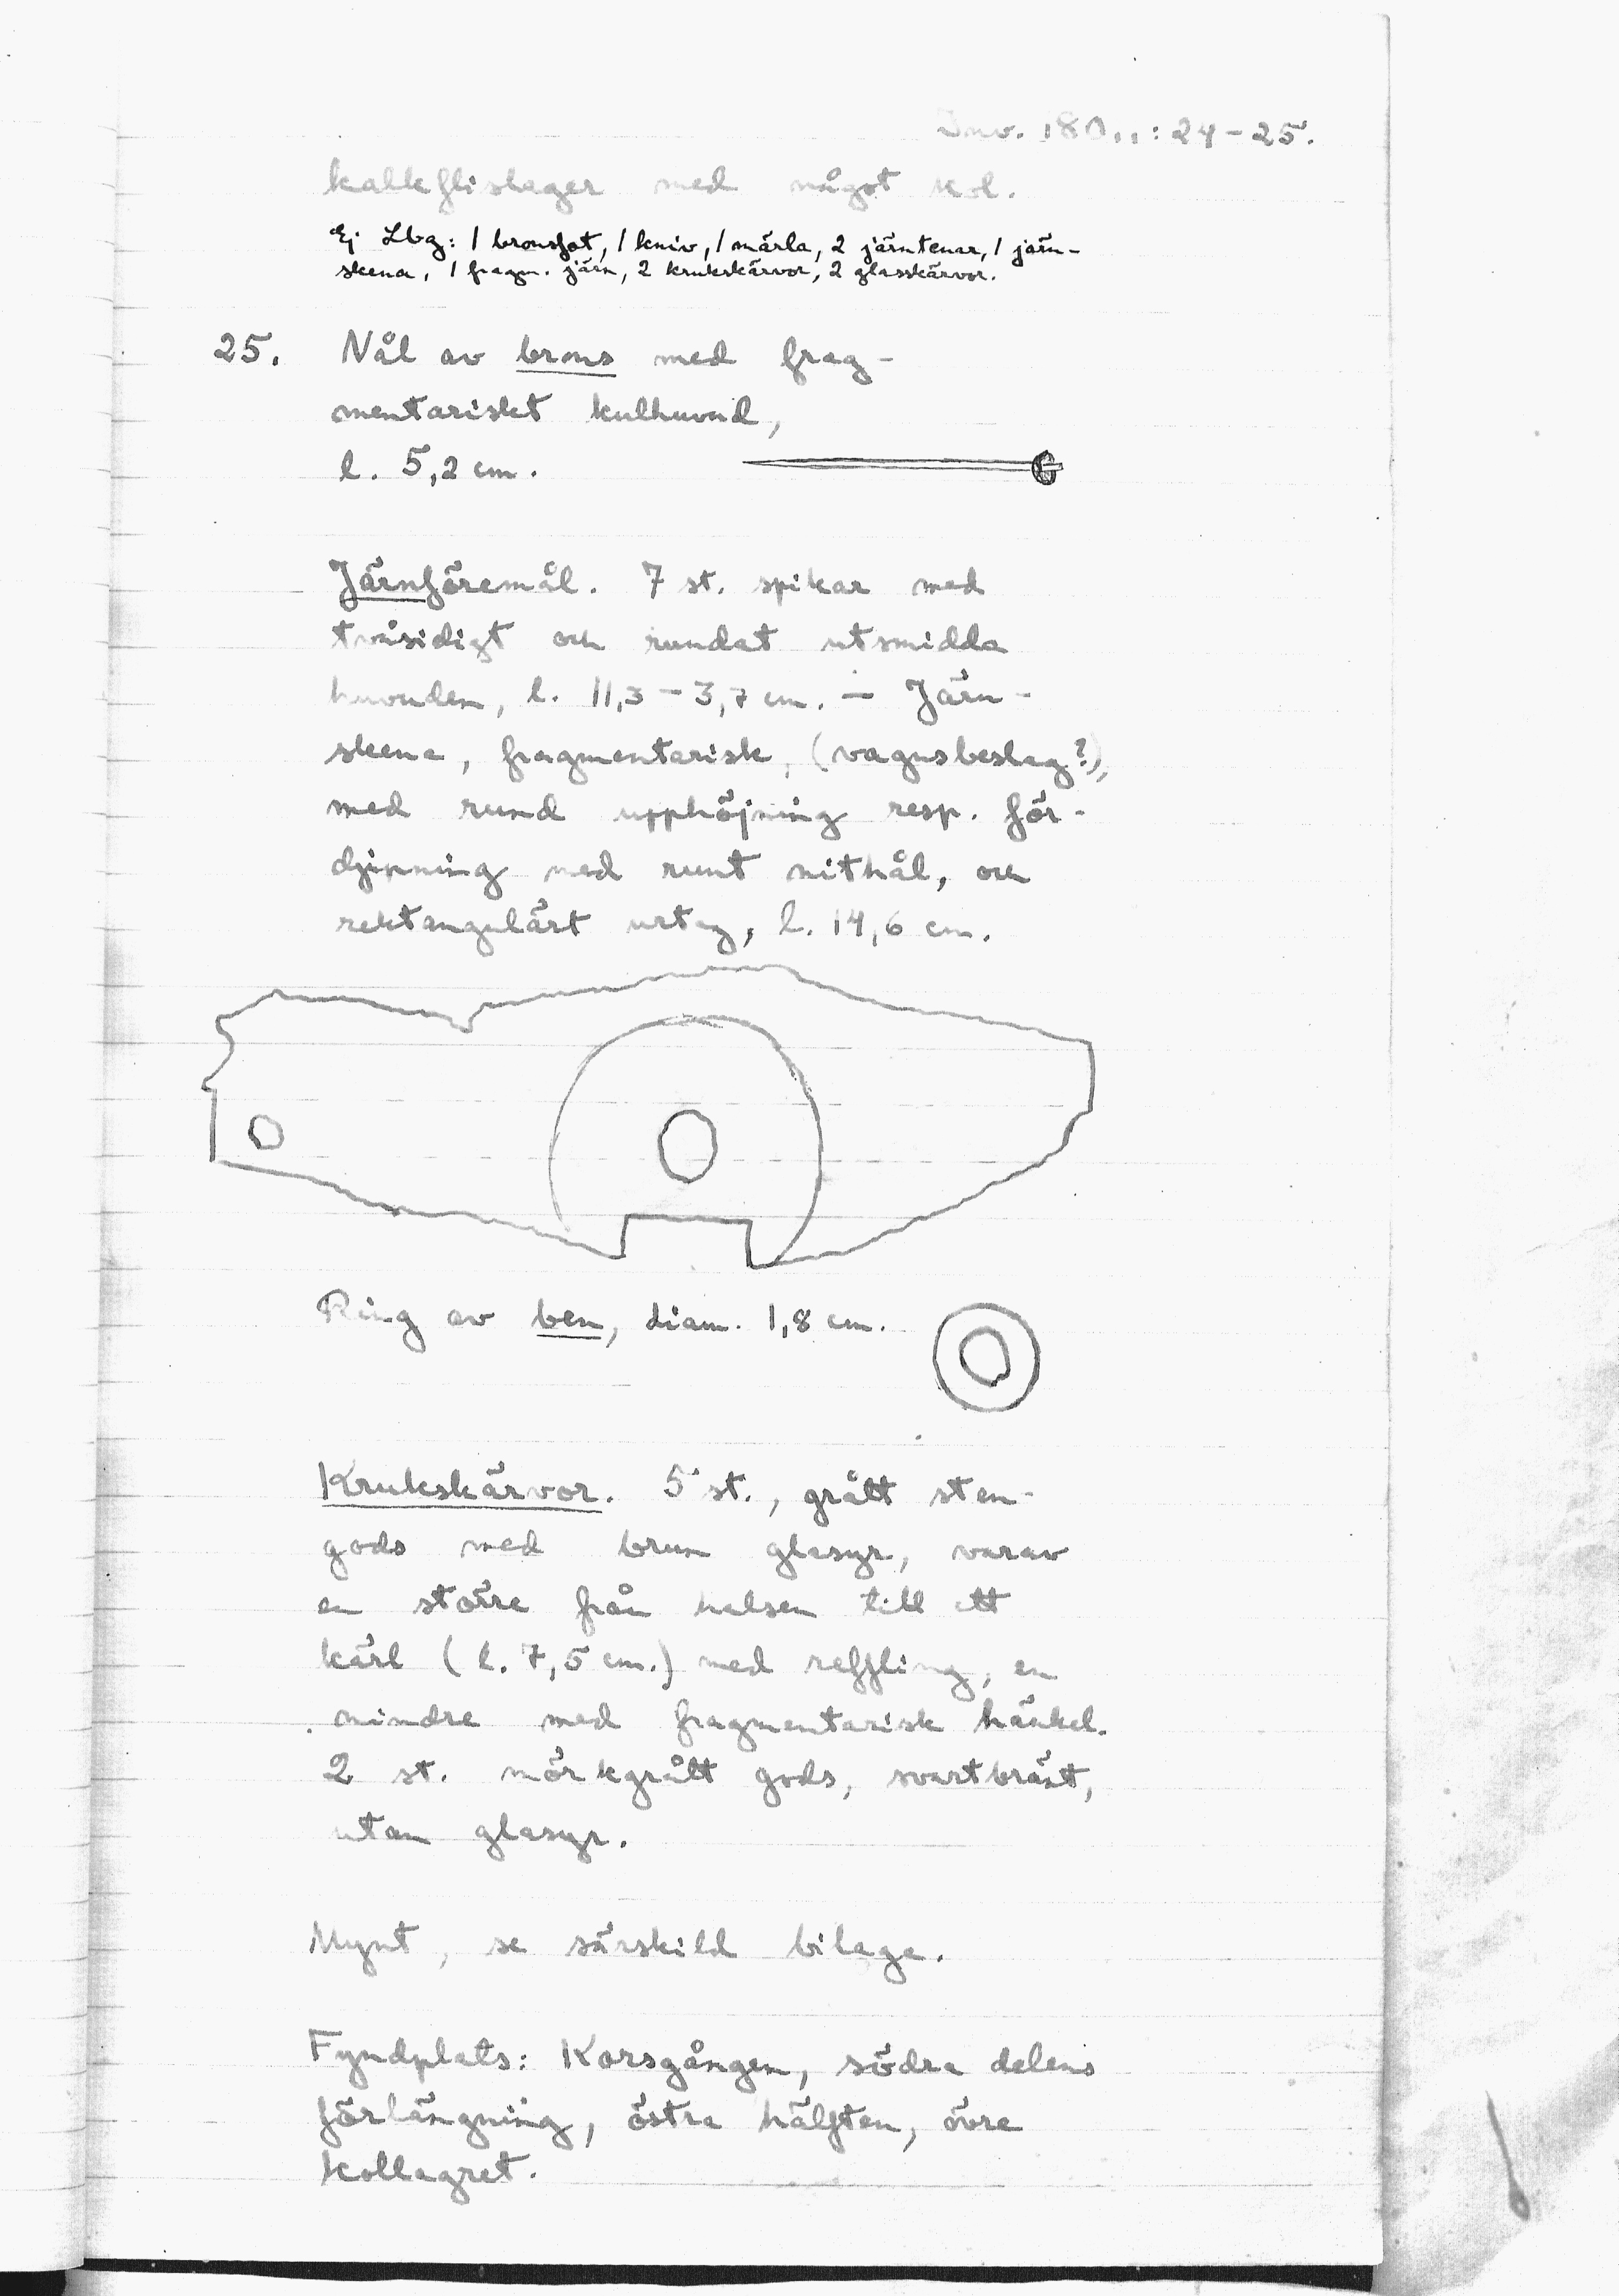 Inv. 180,,: 24-25.
kalkflislager med något kol.
Ej Lbg: 1 bronsfot, 1 kniv, 1 märla, 2 järntenar, 1 järn-
skena, 1 fragm. järn, 2 krukskärvor, 2 glasskärvor.
25. Nål av brons med frag-
mentariskt kulhuvud,
l. 5,2 cm.
Järnföremål. 7 st. spikar med
tvåsidigt och rundat utsmidda
huvuden, l. 11,3-3,7 cm. - Järn-
skena, fragmentarisk, (vagnsbeslag?),
med rund upphöjning resp. för-
djupning med runt nithål, och
rektangulärt urtag, l. 14,6 cm.
Ring av ben, diam. 1,8 cm.
Krukskärvor. 5 st., grått sten-
gods med brun glasyr, varav
en större från halsen till ett
kärl (l. 7,5 cm.) med reffling, en
mindre med fragmentarisk hänkel.
2 st. mörkgrått gods, svartbränt,
utan glasyr.
Mynt, se särskild bilaga.
Fyndplats: Korsgången, södra delens
förlängning, östra hälften, övre
kollagret.